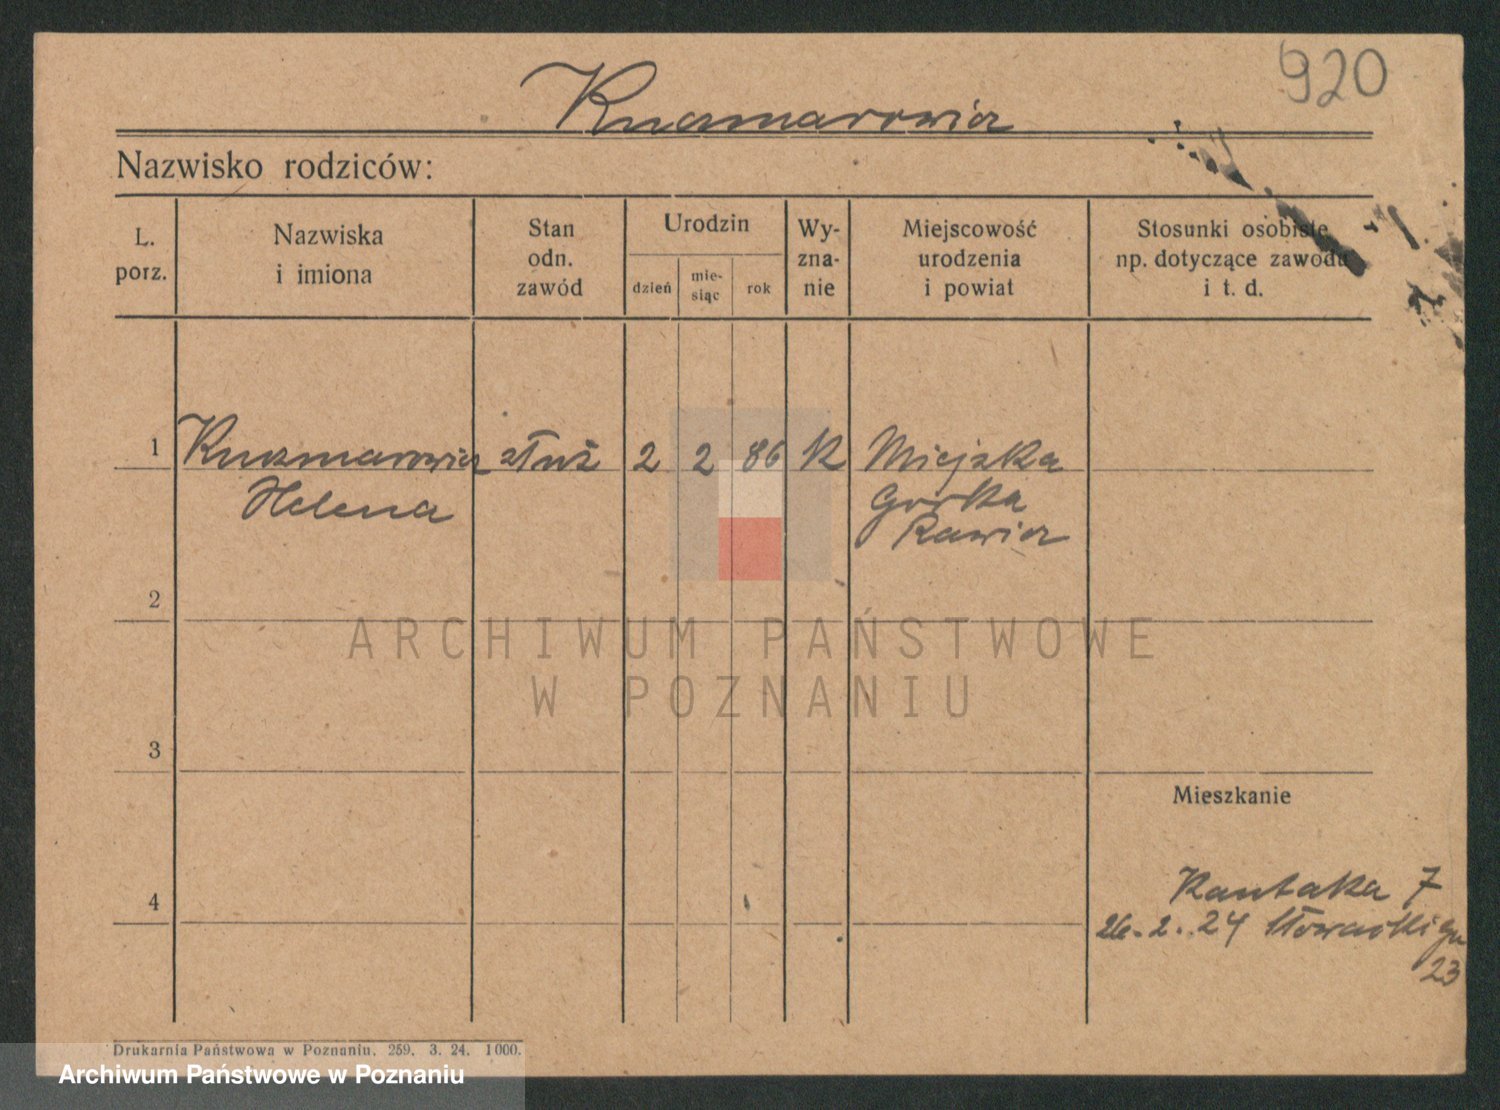 920
Kuczmarowicz
Nazwisko rodziców:
L. porz.
Nazwiska i imiona
Stan odn. zawód
Urodzin
dzień
mie-siąc
rok
Wy-zna-nie
Miejscowość urodzenia i powiat
Stosunki osobiste np. dotyczące zawodu i t. d.
1 służ 2 2 86 K Miejska
Helena Gorka
Rawicz
2
ARCHIWUM PAŃSTWOWE
W POZNANIU
3
Mieszkanie
4
Kantaka 7
26. 2. 24 Słowackiego
23
Drukarnia Państwowa w Poznaniu. 259. 3. 24. 1000.
Archiwum Państwowe w Poznaniu